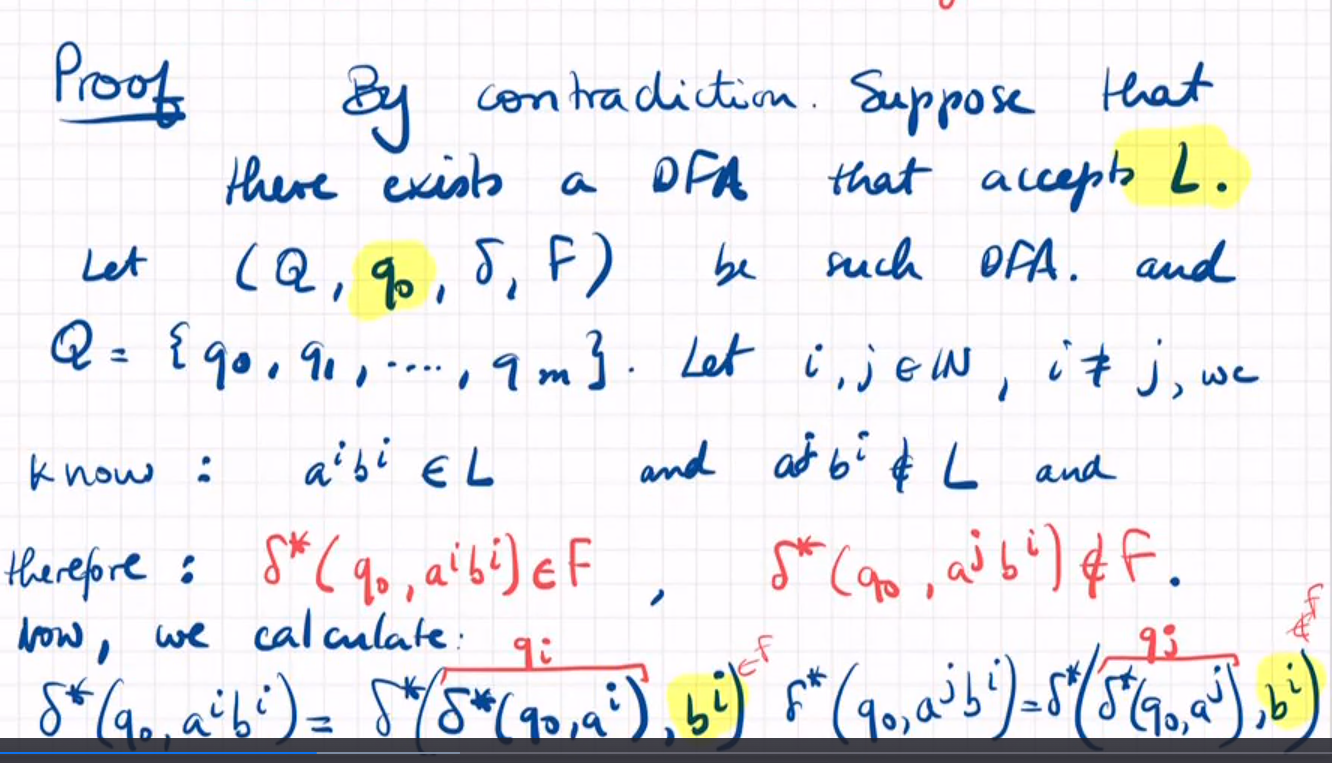 Proof By contradiction. Suppose that
there exists a DFA that accepts L.
Let (Q, q₀, δ, F) be such DFA. and
Q = {q₀, q₁, ...., q m}. Let i, j ∈ ℕ, i ≠ j, we
know : aⁱbⁱ ∈ L and aʲbⁱ ∉ L and
therefore : δ*(q₀, aⁱbⁱ) ∈ F , δ*(q₀, aʲbⁱ) ∉ F.
now, we calculate: qᵢ qⱼ
δ*(q₀, aⁱbⁱ) = δ*(δ*(q₀, aⁱ), bⁱ) ∈ F δ*(q₀, aʲbⁱ) = δ*(δ*(q₀, aʲ), bⁱ) ∉ F